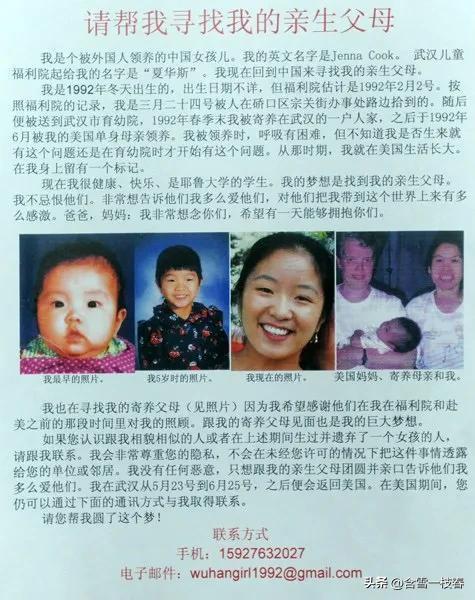 请帮我寻找我的亲生父母
我是个被外国人领养的中国女孩儿。我的英文名字是Jenna Cook。 武汉儿童
福利院起给我的名字是“夏华斯”。我现在回到中国来寻找我的亲生父母。
我是1992年冬天出生的，出生日期不详，但福利院估计是1992年2月2号。按
照福利院的记录，我是三月二十四号被人在硚口区宗关街办事处路边拾到的。随后
便被送到武汉市育幼院，1992年春季末我被寄养在武汉的一户人家，之后于1992年
6月被我的美国单身母亲领养。我被领养时，呼吸有困难，但不知道我是否生来就
有这个问题还是在育幼院时才开始有这个问题。从那时期，我就在美国生活长大。
在我身上留有一个标记。
现在我很健康、快乐、是耶鲁大学的学生。我的梦想是找到我的亲生父母。
我不忌恨他们。非常想告诉他们我多么爱他们，对他们把我带到这个世界上来有多
么感激。爸爸，妈妈：我非常想念你们，希望有一天能够拥抱你们。
我最早的照片。
我5岁时的照片。
我现在的照片。
美国妈妈、寄养母亲和我。
我也在寻找我的寄养父母（见照片）因为我希望感谢他们在我在福利院和赴
美之前的那段时间里对我的照顾。跟我的寄养父母见面也是我的巨大梦想。
如果您认识跟我相貌相似的人或者在上述期间生过并遗弃了一个女孩的人，
请跟我联系。我会非常尊重您的隐私，不会在未经您许可的情况下把这件事情透露
给您的单位或邻居。我没有任何恶意，只想跟我的亲生父母团圆并亲口告诉他们我
多么爱他们。我在武汉从5月23号到6月25号，之后便会返回美国。在美国期间，您
仍可以通过下面的通讯方式与我取得联系。
请您帮我圆了这个梦！
联系方式
手机：15927632027
电子邮件：wuhangirl1992@gmail.com
头条 @含雪一枝春